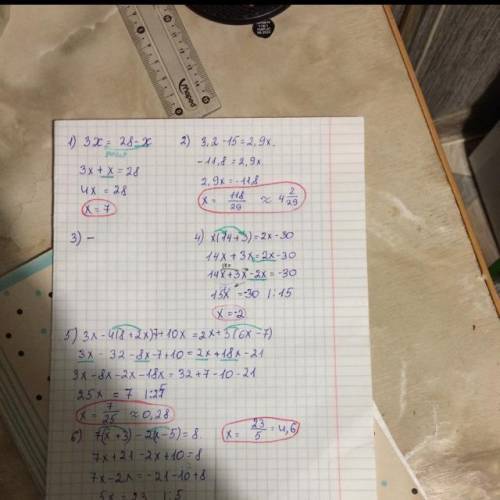 Maped
1) 3x = 28 - x
3x + x = 28
4x = 28
x = 7
2) 3,2 - 15 = 2,9x.
-11,8 = 2,9x.
2,9x = -11,8
x = 118/29 ≈ 4 2/29
3) -
4) x(14+3) = 2x - 30
14x + 3x = 2x - 30
14x + 3x - 2x = -30
15x = -30 | : 15
x = -2
5) 3x - 4(8 + 2x) 7 + 10x = 2x + 3(6x - 7)
3x - 32 - 8x - 7 + 10 = 2x + 18x - 21
3x - 8x - 2x - 18x = 32 + 7 - 10 - 21
25x = 7
x = 7/25 ≈ 0,28
6) 7(x+3) - 2(x-5) = 8
7x + 21 - 2x + 10 = 8
7x - 2x = -21 - 10 + 8
5x = 23 | : 5
x = 23/5 = 4,6